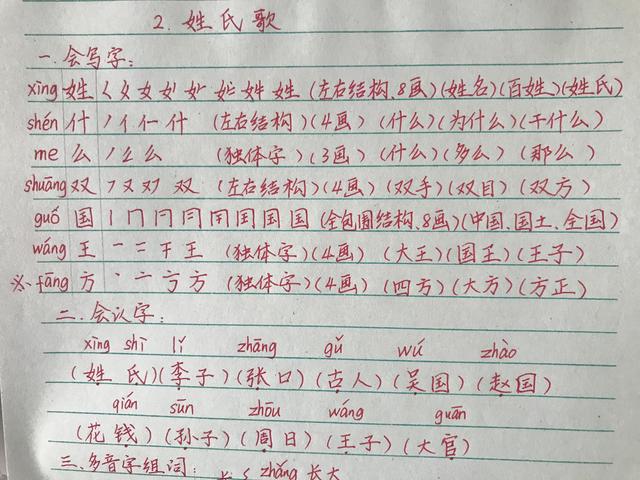 2. 姓氏歌
一.会写字:
xìng 姓 く 夂 女 女' 女𠂉 姓 姓 (左右结构、8画)(姓名)(百姓)(姓氏)
shén 什 丿 亻 仁 什 (左右结构)(4画)(什么)(为什么)(干什么)
me 么 丿 么 (独体字)(3画)(什么)(多么)(那么)
shuāng 双 フ 又 双 (左右结构)(4画)(双手)(双目)(双方)
guó 国 丨 冂 国 国 (全包围结构、8画)(中国、国土、全国)
wáng 王 一 二 干 王 (独体字)(4画)(大王)(国王)(王子)
※ fāng 方 丶 亠 方 (独体字)(4画)(四方)(大方)(方正)
二.会认字:
xìng shì lǐ zhāng gǔ wú zhào
(姓 氏)(李子)(张口)(古人)(吴国)(赵国)
qián sūn zhōu wáng guān
(花钱)(孙子)(周日)(王子)(大官)
三.多音字组词:
zhǎng 长大